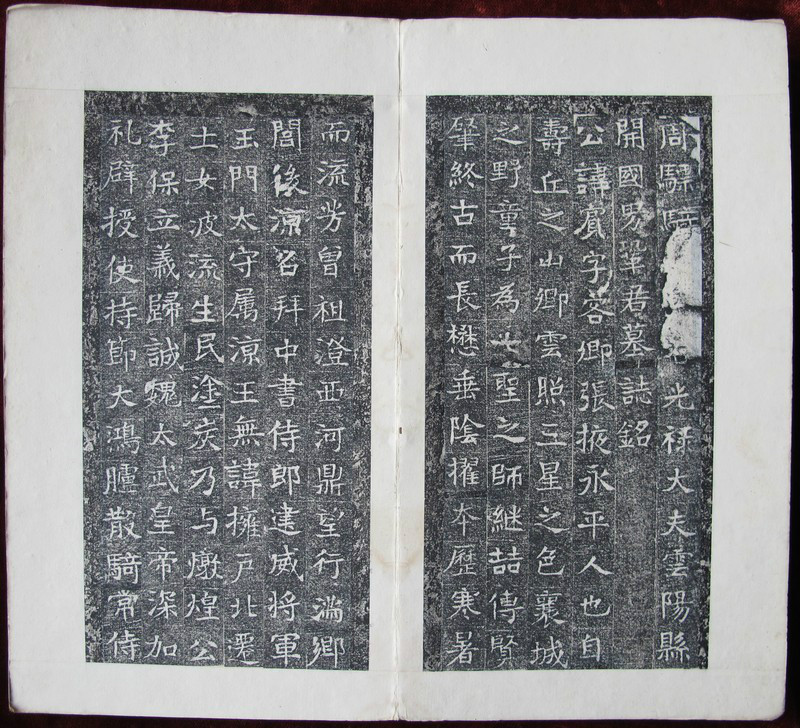 周驃騎 光祿大夫雲陽縣
開國男鞏君墓誌銘
公諱賓字客卿張掖永平人也自
壽丘之山卿雲照三星之色襄城
之野童子為七聖之師継喆傳賢
肇終古而長懋垂陰擢本歷寒暑
而流芳曾祖澄西河鼎望行滿鄉
閭後涼召拜中書侍郎建威將軍
玉門太守属涼王無諱擁戶北遷
士女波流生民塗炭乃与燉煌公
李保立義歸誠魏太武皇帝深加
礼辟授使持節大鴻臚散騎常侍